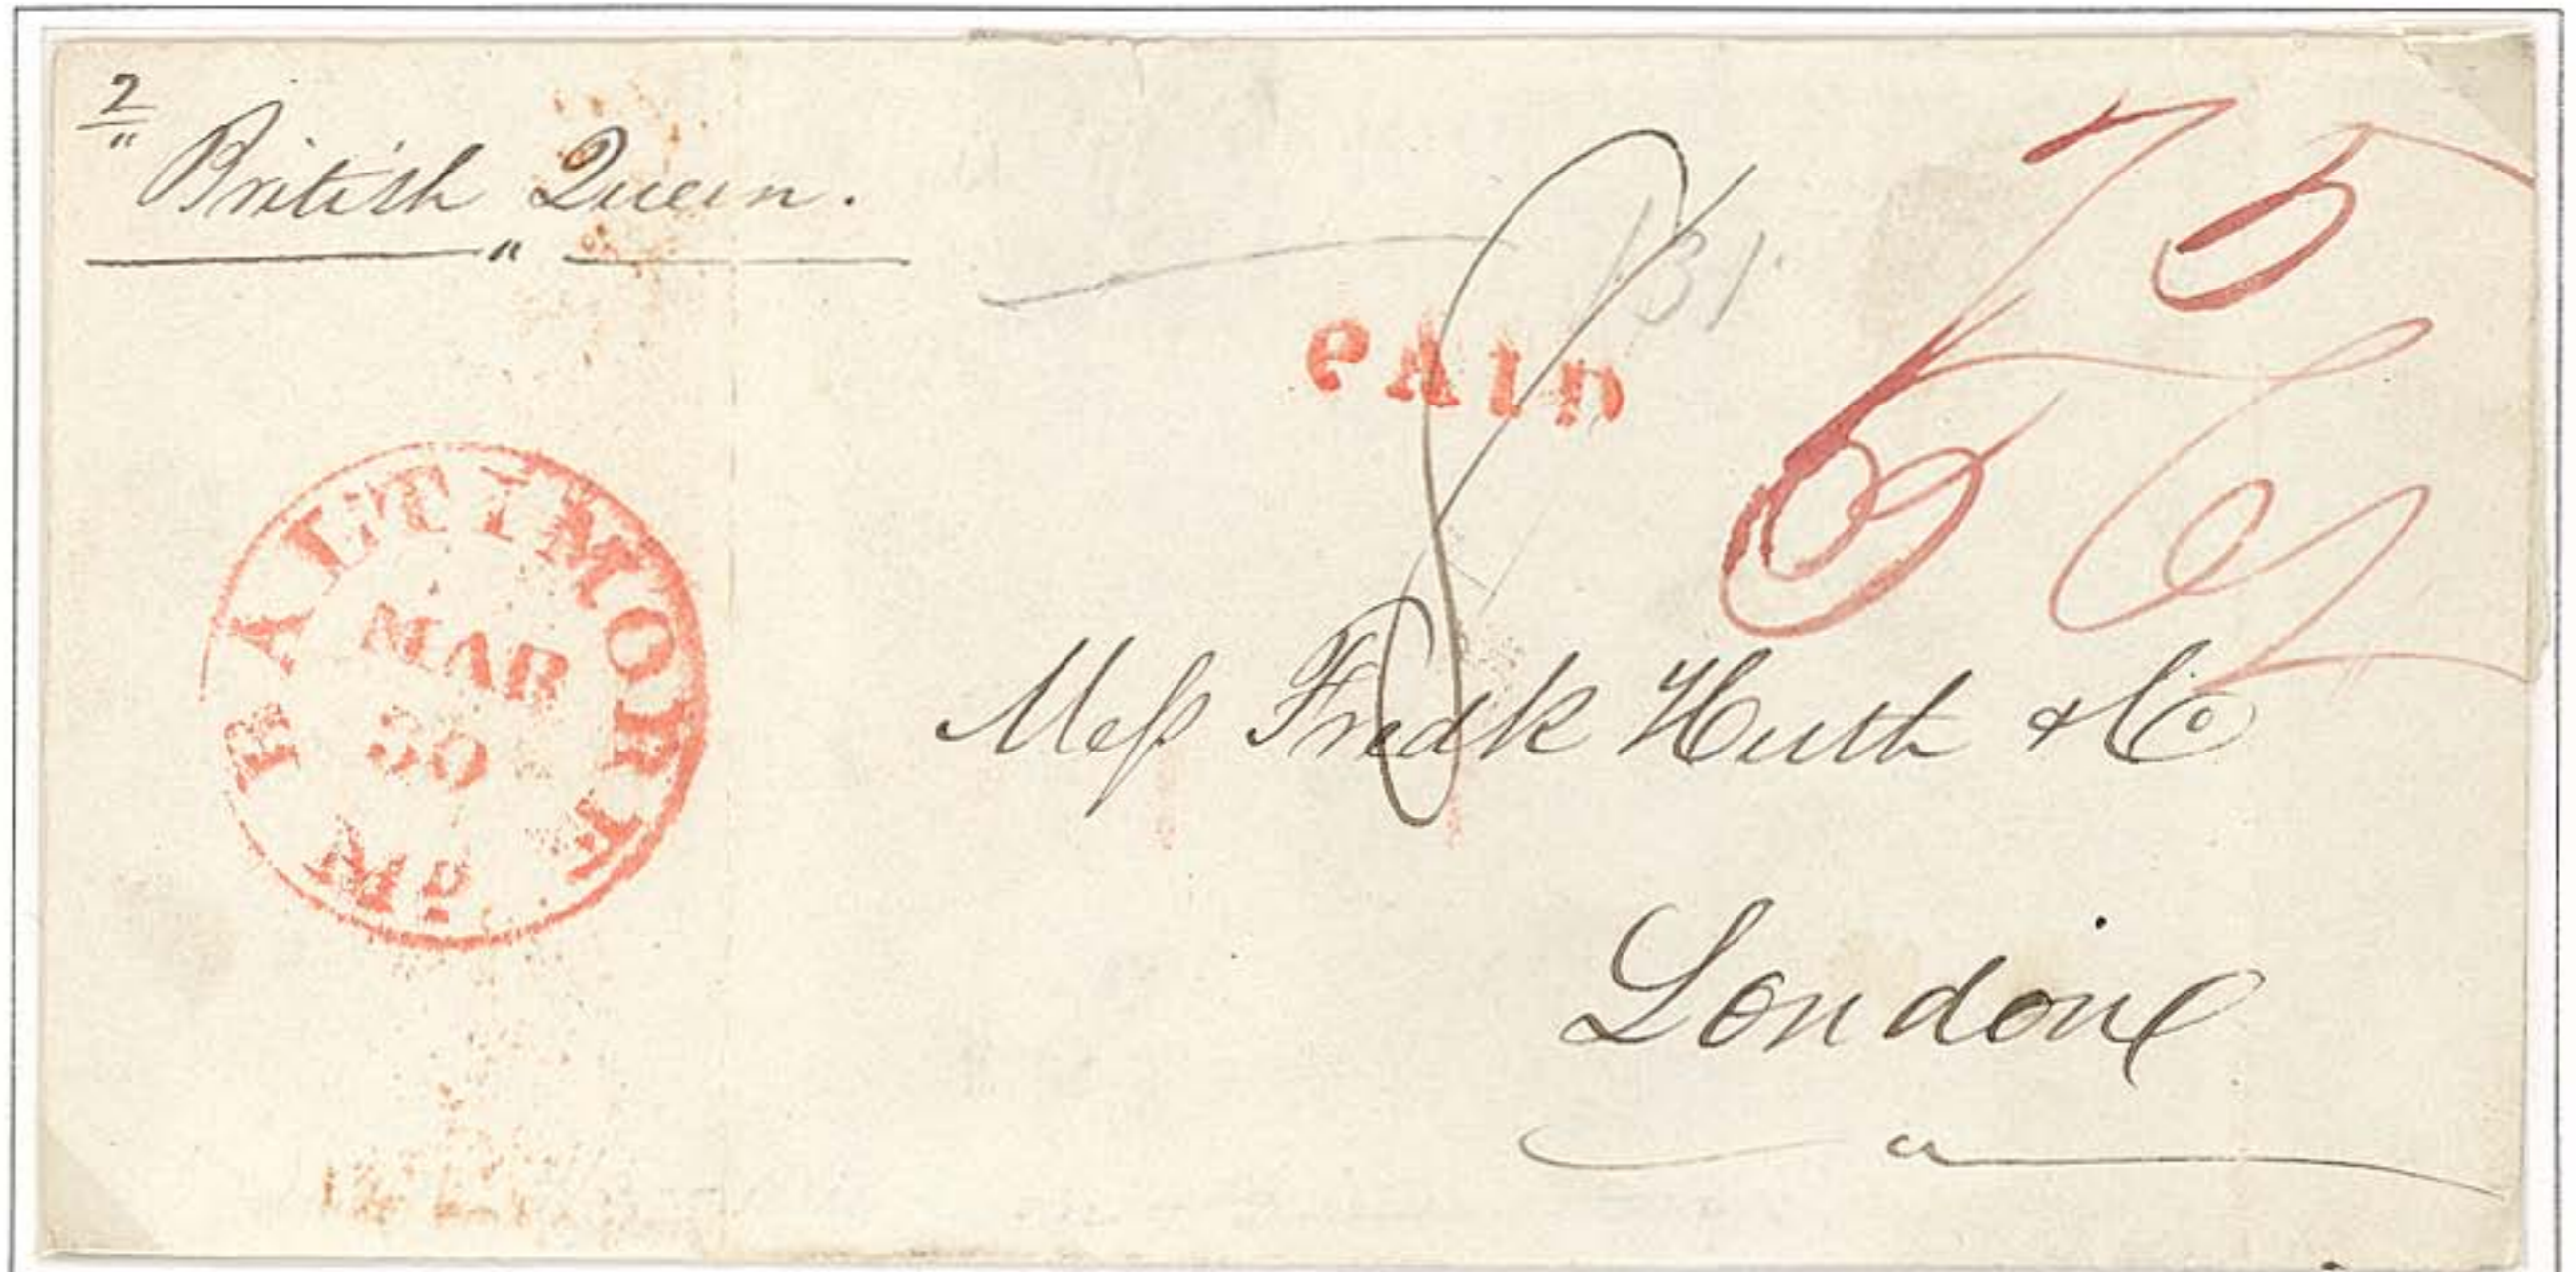 2
British Queen.
75
131
PAID
8
BALTIMORE
MAR
30
Md.
Mess Fredk Huth & Co
London